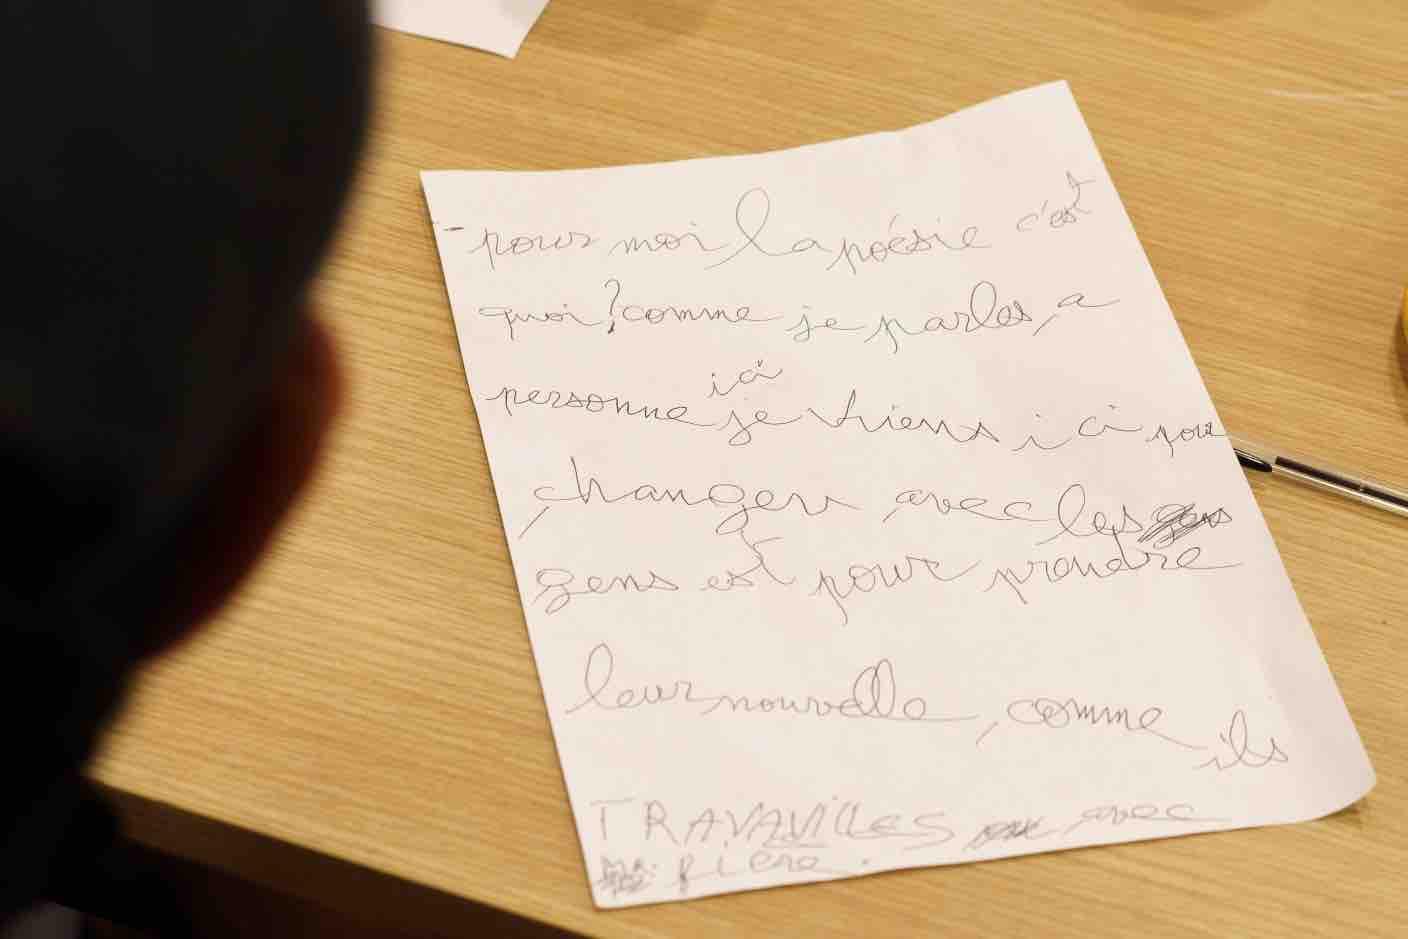 - pour moi la poésie c'est
quoi ? comme je parles, a
personne ici je viens ici pour
changer avec les
gens est pour prendre
leur nouvelle, comme
ils
TRAVAVILLES avec